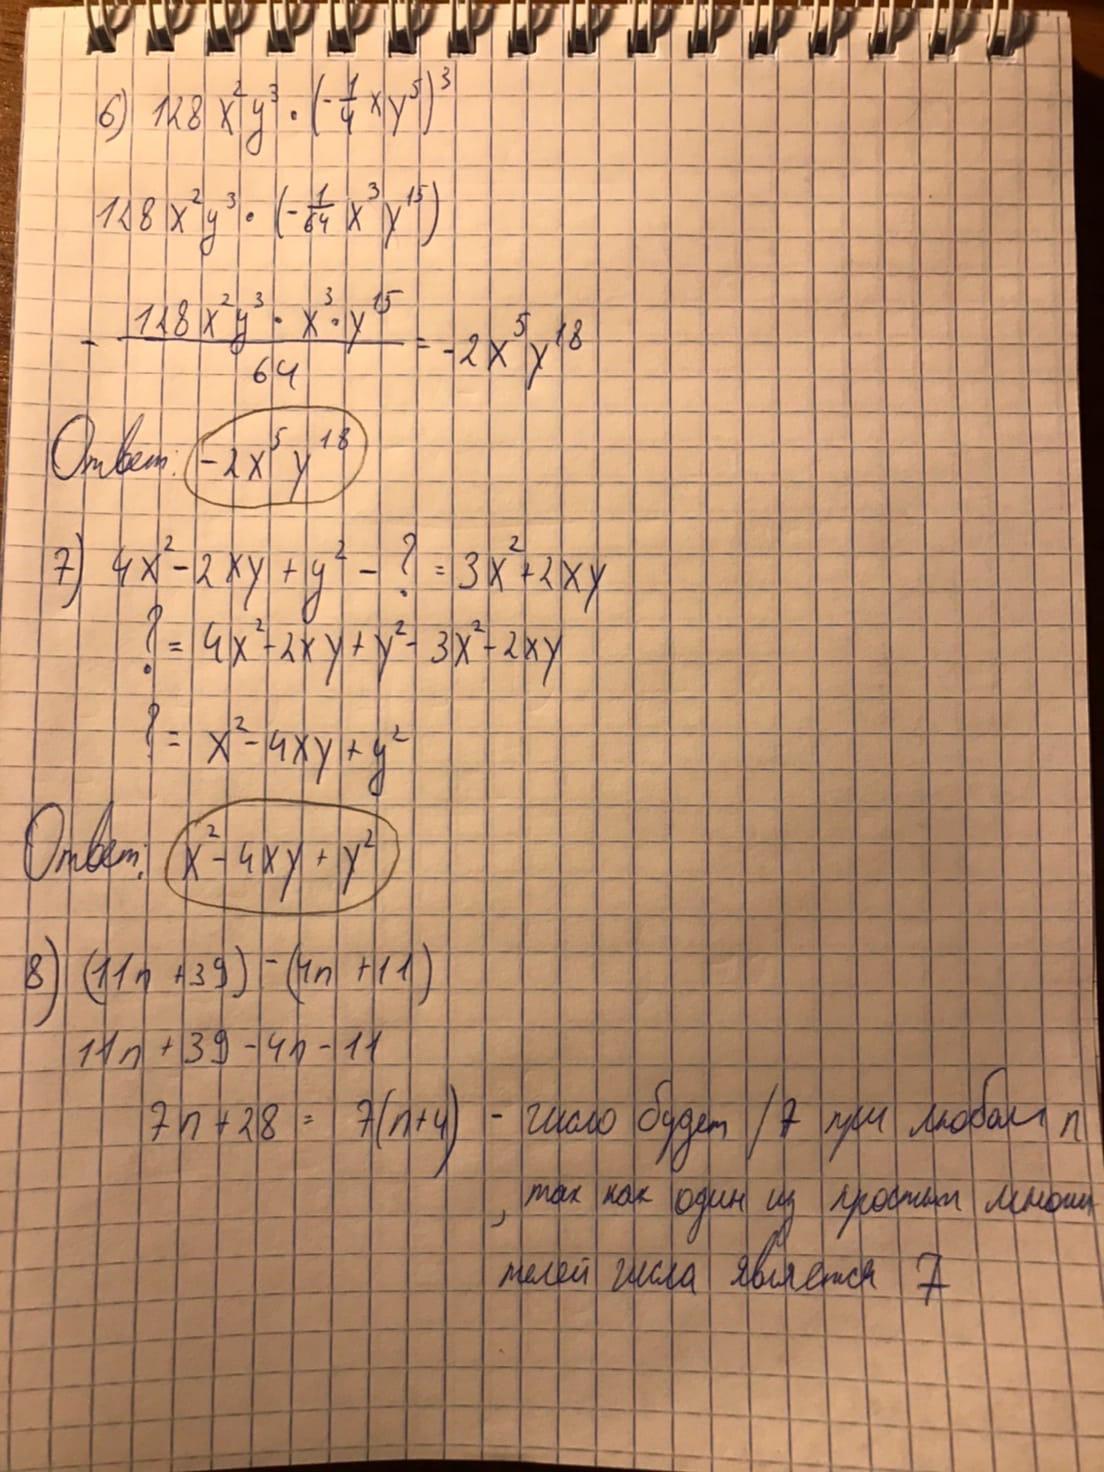 6) 128 x²y³ · (-1/4 xy⁵)³
128 x²y³ · (-1/64 x³y¹⁵)
- 128x²y³ · x³ · y¹⁵ / 64 = -2x⁵y¹⁸
Ответ: -2x⁵y¹⁸
7) 4x² - 2xy + y² - ? = 3x² + 2xy
? = 4x² - 2xy + y² - 3x² - 2xy
? = x² - 4xy + y²
Ответ: x² - 4xy + y²
8) (11n + 39) - (4n + 11)
11n + 39 - 4n - 11
7n + 28 = 7(n+4) - число будет / 7 при любом n
, так как один из простых множи
телей числа является 7